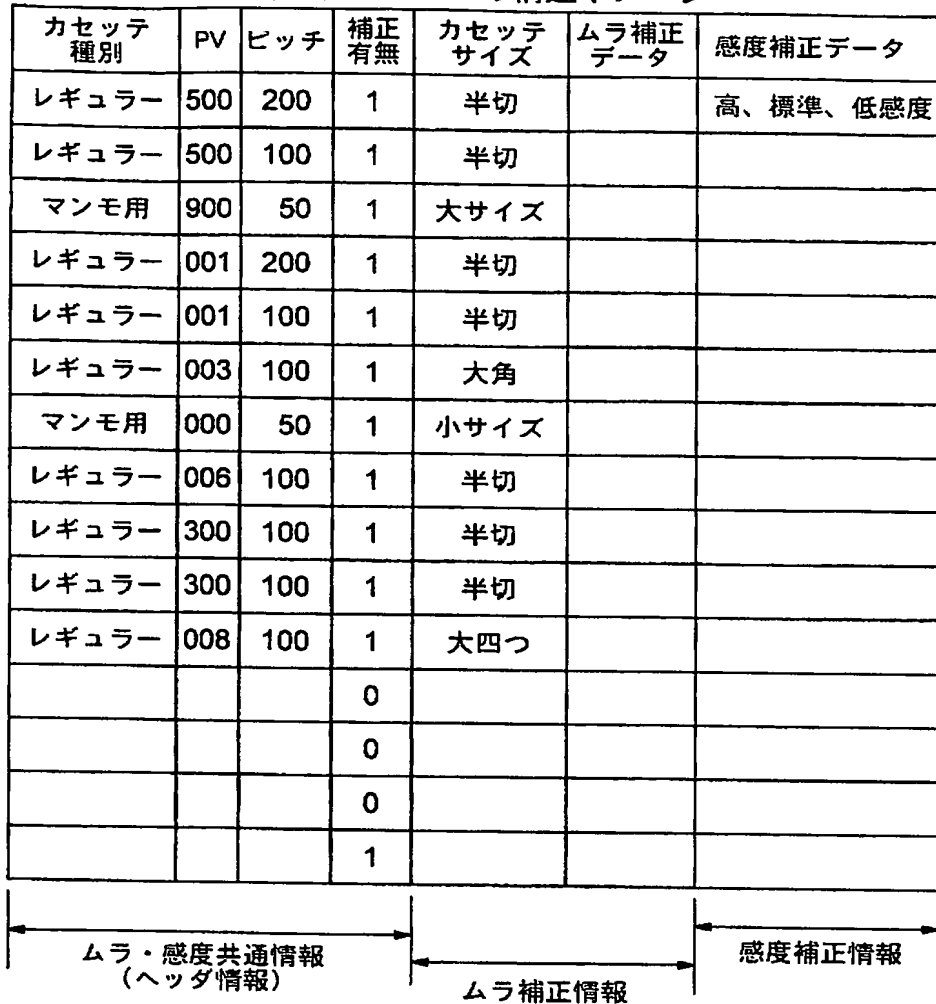 カセッテ種別 PV ピッチ 補正有無 カセッテサイズ ムラ補正データ 感度補正データ
レギュラー 500 200 1 半切 高、標準、低感度
レギュラー 500 100 1 半切
マンモ用 900 50 1 大サイズ
レギュラー 001 200 1 半切
レギュラー 001 100 1 半切
レギュラー 003 100 1 大角
マンモ用 000 50 1 小サイズ
レギュラー 006 100 1 半切
レギュラー 300 100 1 半切
レギュラー 300 100 1 半切
レギュラー 008 100 1 大四つ
0
0
0
1
ムラ・感度共通情報
(ヘッダ情報)
ムラ補正情報
感度補正情報